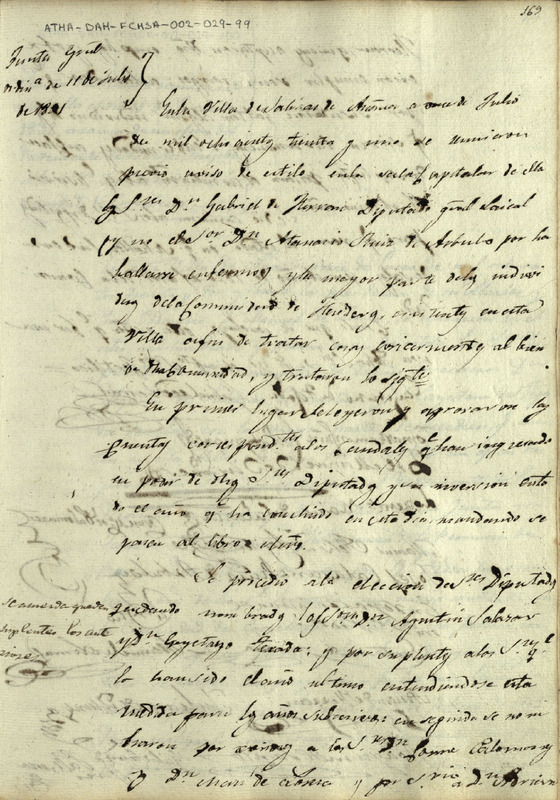 169
ATHA-DAH-FCHSA-002-029-99
Junta Gral
ordin.ª de 11 de Julio
de 1831
En la Villa de Salinas de Añana a once de Julio
de mil ochocientos treinta y uno se reunieron
previo aviso de estilo en la sala Capitular de ella
los Sres Dn Gabriel de Herran Diputado gral Laical
(y no el Sor Dn Atanasio Ruiz de Arbulo por ha
llarse enfermo) y la mayor parte de los indivi
duos de la Comunidad de Herederos, existentes en esta
Villa a fin de tratar cosas concernientes al bien
de dha Comunidad, y trataron lo sigte
En primer lugar se leyeron y aprovaron las
Cuentas correspondtes a los Caudales qe han ingresado
en poder de dhos Sres Diputados y su inversion en to
do el año qe ha concluido en este dia, mandando se
pasen al libro
Se procedio a la eleccion de Sres Diputados
quedando nombrados los Sres Dn Agustin Salazar
y Dn Cayetano y por suplentes a los Sres qe
lo han sido el año ultimo entendiendose esta
medida para los años subcesivos: en seguida se nom
braron por a los Sres Dn
y Dn Man.l de y por Srio a Dn
Se acuerda queden
Suplentes los ant
eriores